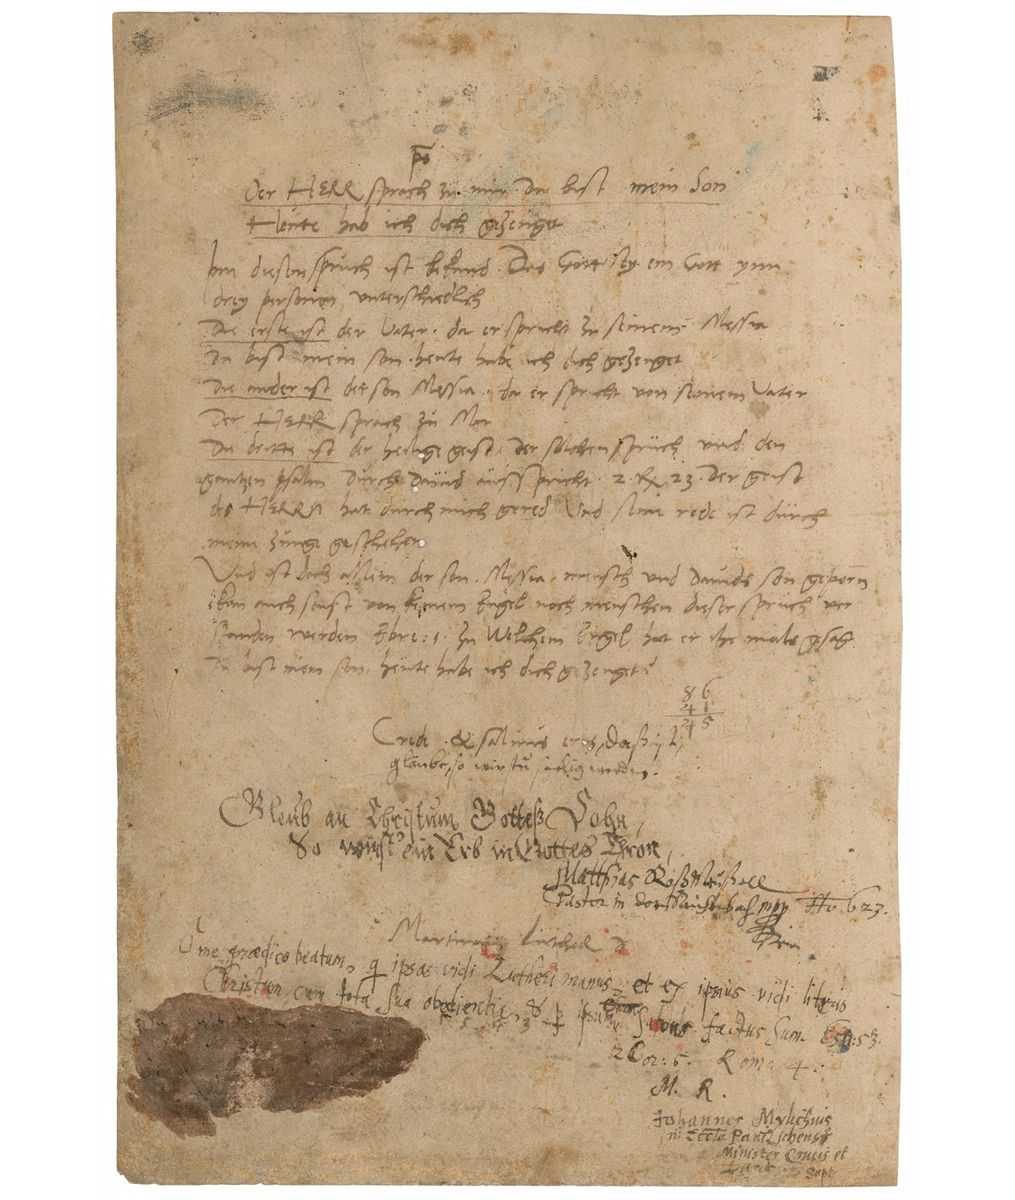 ps
Der HERR sprach zu mir Du bist mein Son
Heute hab ich dich gezeuget
Inn diesem spruch ist bekand. Das Gott sey ein Gott ynn
drey personen unterschiedlich
Die erste ist der Vater. da er spricht zu seinem Messia
Du bist mein son. heute habe ich dich gezeuget
Die ander ist der son Messia. da er spricht von seinem Vater
Der HERR sprach zu Mir
Die dritte ist der heilige geist. der solchen spruch und den
gantzen psalm durch David ausspricht. 2. R 23. Der geist
des HERRN hat durch mich gered Und seine rede ist durch
meine zunge geschehen
Und ist doch allein der son. Messia. mensch und Davids son geborn
kan auch sonst von keinem Engel noch menschen dieser spruch ver
standen werden Ebre: 1. Zu Welchem Engel hat er ihe mals gesagt
Du bist mein son, heute habe ich dich gezeuget?
86
41
45
Crede & salvus eris, daß ist,
glaube, so wirstu selig werden.
Gleub an Christum Gotteß Sohn,
So wirst ein Erb in Gottes Thron,
Matthias
Pastor in mpp Ao. 623.
Martinus Luther D
O me prædico beatum, q ipsas vidi Lutheri manus, et ex ipsius vidi literis
Christum cum tota sua obedientia, & ipsum factus sum. Esa: 53.
2 Cor: 5. Rom: 4.
M. R.
Johannes Mylichius
Minister et